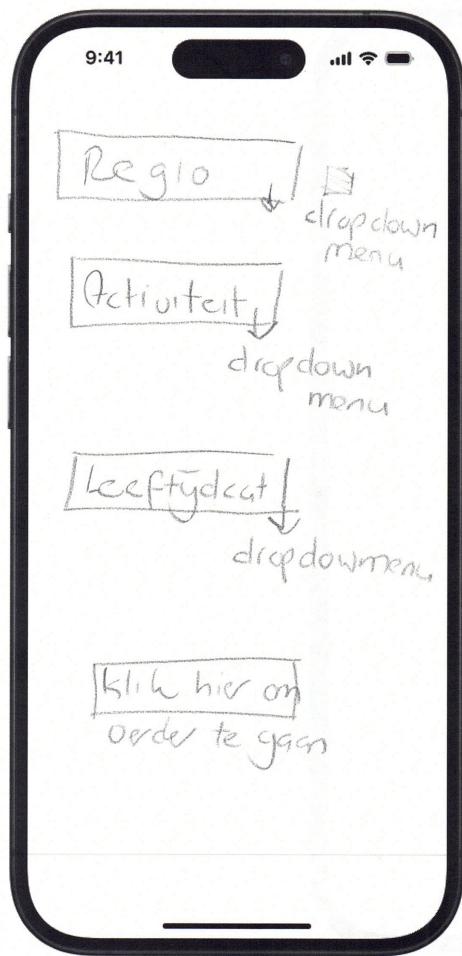 9:41
Regio
dropdown
menu
Activiteit
dropdown
menu
Leeftijdcat
dropdowmenu
klik hier om
verder te gaan